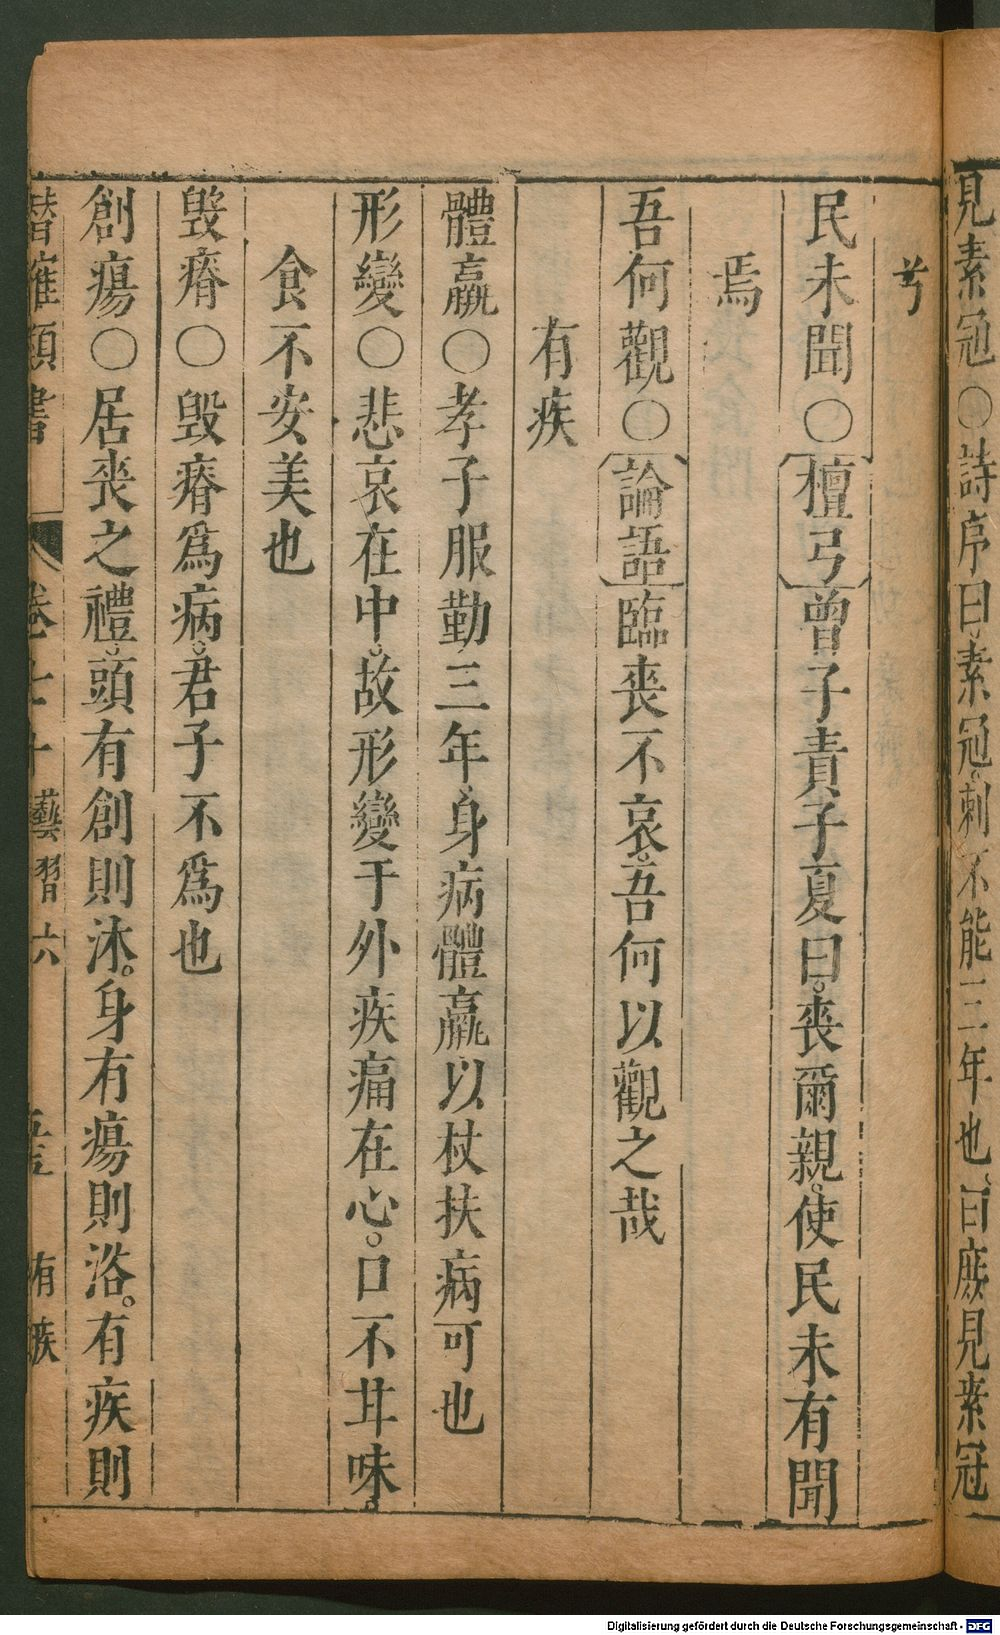 見素冠○詩序曰素冠刺不能三年也曰庶見素冠
兮
民未聞○檀弓曾子責子夏曰。喪爾親。使民未有聞
焉
吾何觀○論語臨喪不哀。吾何以觀之哉
有疾
體羸○孝子服勤三年身病體羸以杖扶病可也
形變○悲哀在中。故形變于外疾痛在心。口不甘味。
食不安美也
毀瘠○毀瘠爲病。君子不爲也
創瘍○居喪之禮。頭有創則沐。身有瘍則浴。有疾則
潛確類書 卷七十 藝習六 有疾
Digitalisierung gefördert durch die Deutsche Forschungsgemeinschaft - DFG